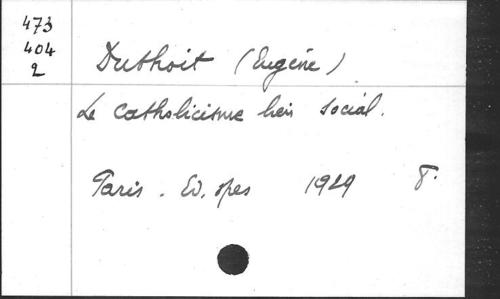 473
404
2
Duthoit (Eugène)
Le catholicisme lien social.
Paris. Ed. Spes 1929 8°